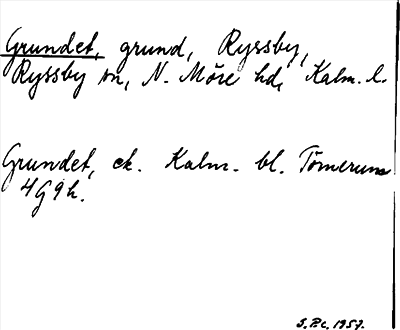 Grundet, grund, Ryssby,
Ryssby sn, N. Möre hd, Kalm. l.
Grundet, ek. Kalm. bl. Tömerum
4G9h.
S.P.c. 1957.